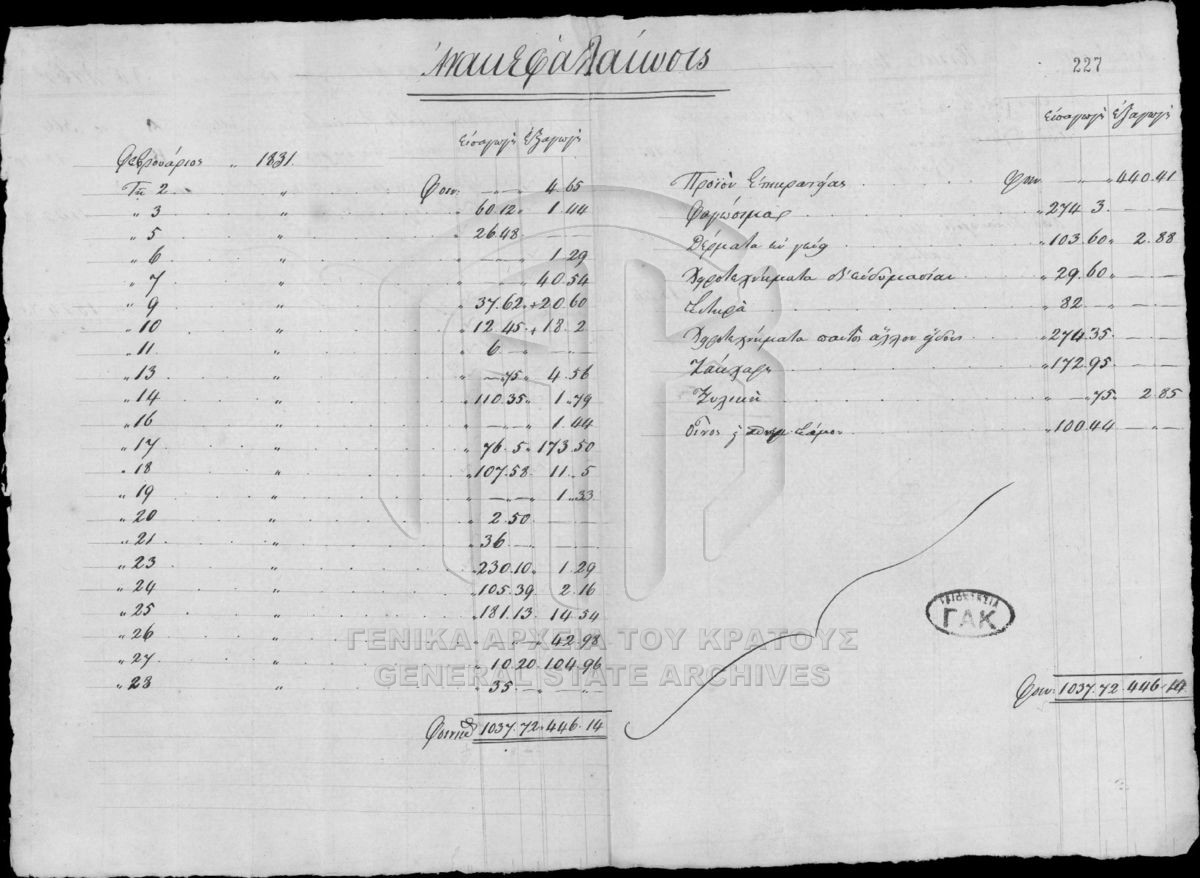 Ἀνακεφαλαίωσις
227
Εἰσαγωγὴ Ἐξαγωγὴ
Φεβρουάριος „ 1831.
Τῇ 2 „ Φοιν: — „ — „ 4.65
„ 3 „ „ 60.12 „ 1.44
„ 5 „ „ 26.48 — —
„ 6 „ „ — „ — „ 1.29
„ 7 „ „ „ 40.54
„ 9 „ „ 37.62 „ +20.60
„ 10 „ „ 12.45 „ +18.2
„ 11 „ „ 6 — „ — „ —
„ 13 „ „ — „ 75 „ 4.56
„ 14 „ „ 110.35 „ 1 „ 79
„ 16 „ „ — „ — „ 1.44
„ 17 „ „ 76.5 „ 173.50
„ 18 „ „ 107.58 „ 11 „ 5
„ 19 „ „ — „ — „ 1 „ 33
„ 20 „ „ 2.50 — —
„ 21 „ „ 36 — „ — —
„ 23 „ „ 230.10 „ 1.29
„ 24 „ „ 105.39 2.16
„ 25 „ „ 181.13 14.54
„ 26 „ „ — 42.98
„ 27 „ „ 10.20 104.96
„ 28 „ „ 35 — „ — „ —
1037.72 „ 446.14
Εἰσαγωγὴ Ἐξαγωγὴ
Προϊὸν Ἐπικρατείας Φοιν: — „ — „ 440.41
Φαγώσιμα „ 274 3 — —
Δέρματα „ 103.60 „ 2.88
„ 29.60 — —
Σιτηρὰ „ 82 — — —
παντὸς ἄλλου εἴδους „ 274.35 — —
Ζάκχαρι „ 172.95 — —
Ξυλικὴ „ — 75 „ 2.85
Οἶνος „ 100.44 — „ —
Φοιν: 1037.72 „ 446.14
ΙΔΙΟΚΤΗΣΙΑ
ΓΑΚ
ΓΕΝΙΚΑ ΑΡΧΕΙΑ ΤΟΥ ΚΡΑΤΟΥΣ
GENERAL STATE ARCHIVES